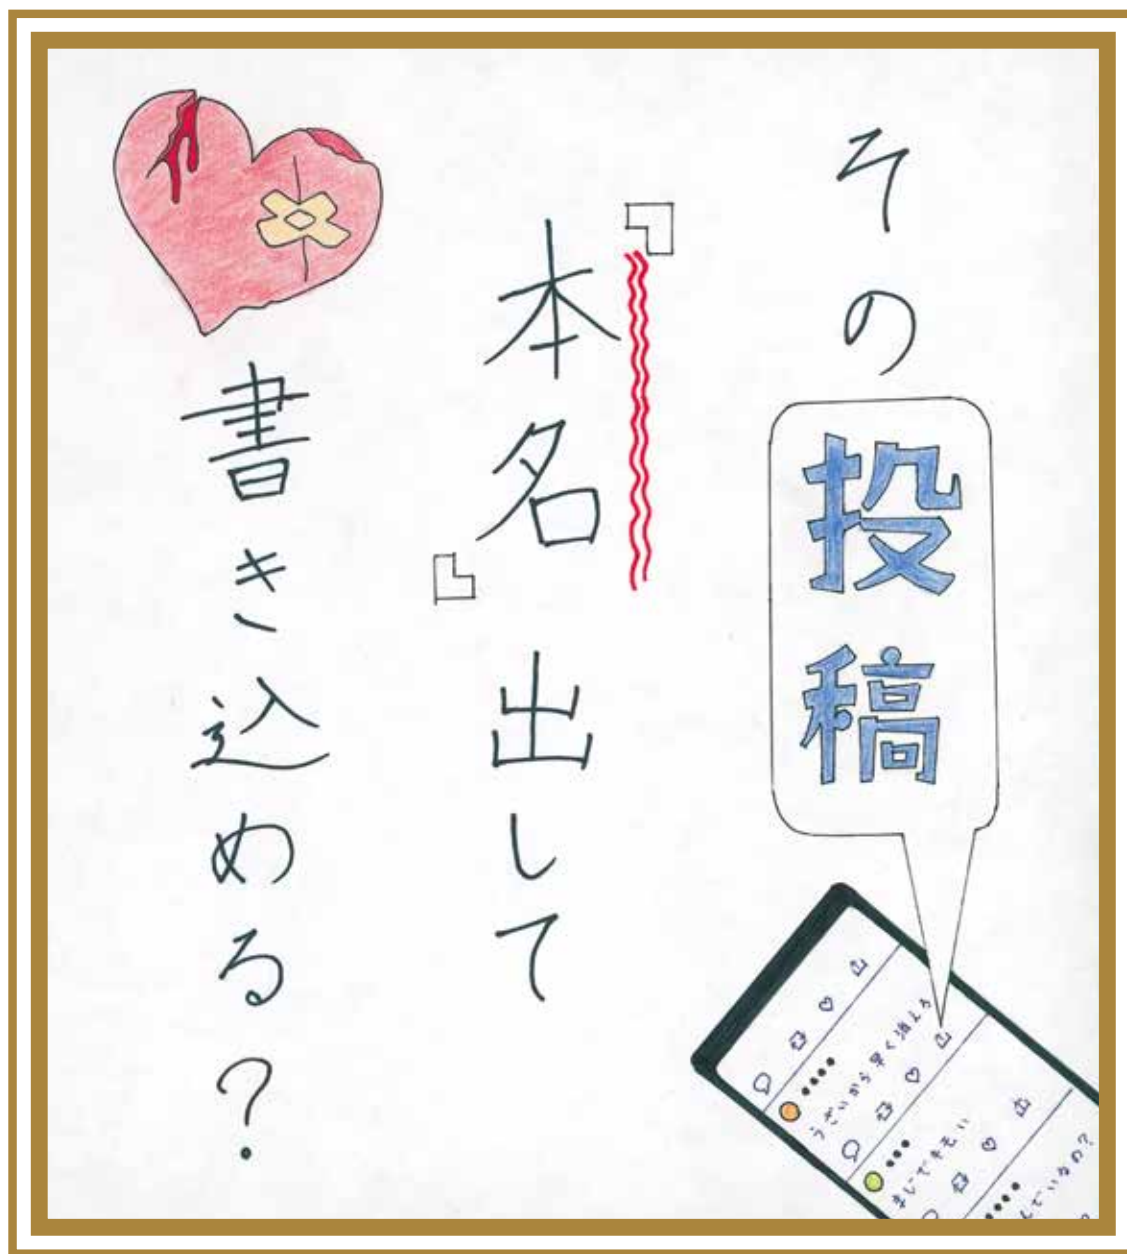 その投稿
『本名』出して
書き込める?
うざいから早く消えろ
まじでキモい